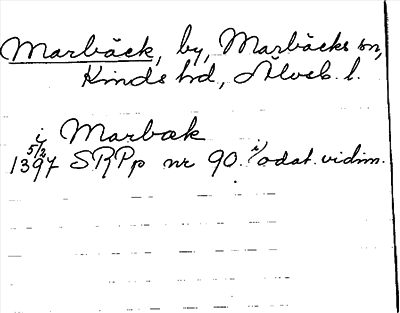 Marbäck, by, Marbäcks sn,
Kinds hd, Älvsb. l.
i Marbæk
5/2 1397 SRPp nr 90. i odat. vidim.